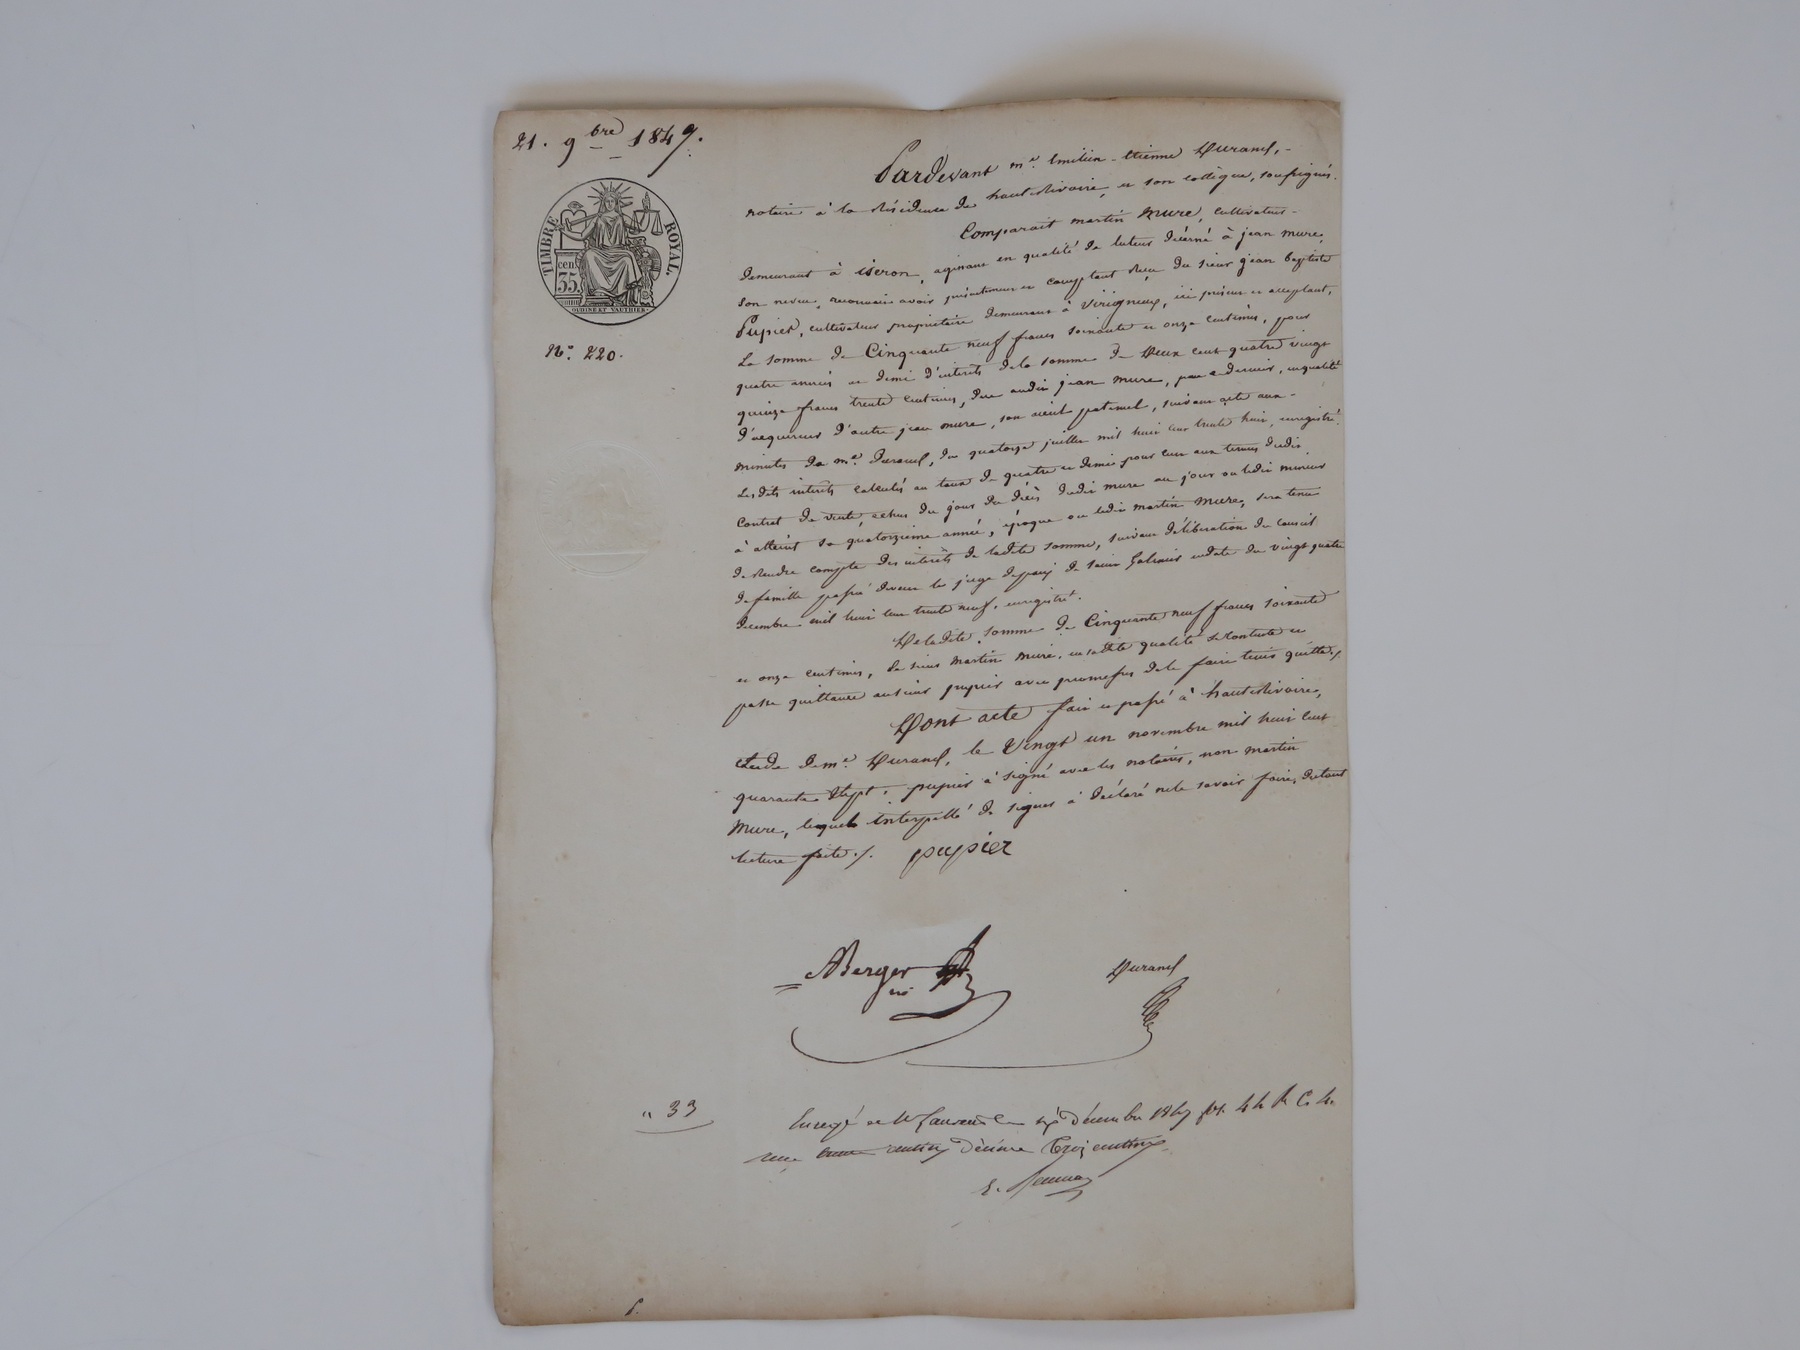 21. 9bre 1847.
TIMBRE ROYAL.
cen.
35.
OUDINE ET VAUTHIER.
N°. 220.
Pardevant me. Emilien-Etienne Durand,
notaire à la résidence de hauterivoire, et son collègue, soussignés.
Comparait martin mure, cultivateur
demeurant à iseron, agissant en qualité de tuteur décerné à jean mure,
son neveu, reconnait avoir présentement et comptant reçu du sieur jean baptiste
Pupier, cultivateur propriétaire demeurant à Virigneux, ici présent et acceptant,
La somme de Cinquante neuf francs soixante et onze centimes, pour
quatre années et demi d'interêts de la somme de deux cent quatre vingt
quinze francs trente centimes, due audit jean mure, par ce dernier, en qualité
d'acquereur d'autre jean mure, son aieul paternel, suivant acte aux
minutes de me. Durand, du quatorze juillet mil huit cent trente huit, enregistré.
Lesdits intérêts calculés au taux de quatre et demi pour cent aux termes dudit
contrat de vente, echus du jour du décès dudit mure au jour ou ledit mineur
à atteint sa quatorzieme année, époque ou ledit martin mure, sera tenu
de rendre compte des interêts de ladite somme, suivant délibération du conseil
de famille passé devant le juge depaix de saint Galmier en date du vingt quatre
decembre mil huit cent trente neuf, enregistré.
De ladite somme de Cinquante neuf francs soixante
et onze centimes, le sieur Martin mure, en sadite qualité se contente et
passe quittance au sieur pupier avec promesses de le faire tenir quitte./.
Dont acte fait et passé à hauterivoire,
étude de me. Durand, le Vingt un novembre mil huit cent
quarante sept. pupier à signé avec les notaires, non martin
Mure, lequel interpellé de signer à déclaré ne le savoir faire, de tout
lecture faite./. pupier
ABerger
Durand
" 33
Enregé à St Laurent le six Décembre 1847 f°. 44 R C. 4.
reçu trente centimes Décime trois centimes